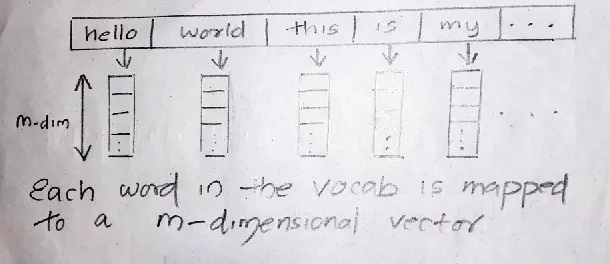 hello | world | this | is | my | ...
m-dim
Each word in the vocab is mapped
to a m-dimensional vector